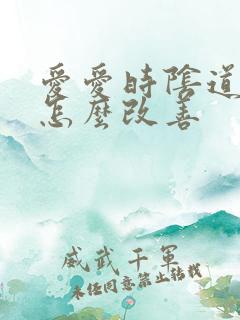 愛愛時陰道
怎麼改善
威武千軍
未經同意禁止轉載